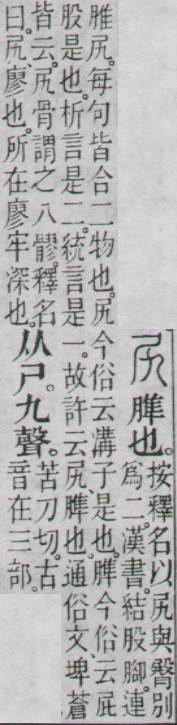 尻 脽也。
按釋名以尻與臀別
爲二。漢書。結股腳。連
脽尻。每句皆合二物也。尻今俗云溝子是也。脽今俗云屁
股是也。析言是二。統言是一。故許云尻、脽也。通俗文埤蒼
皆云。尻骨謂之八髎。釋名
曰。尻、廖也。所在廖牢深也。
从尸。九聲。
苦刀切。古
音在三部。